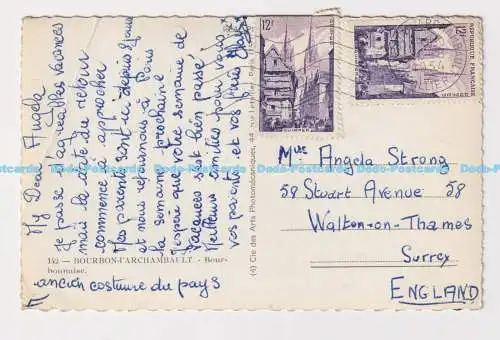 My Dear Angela
Je passe d'agréables vacances
mais la date du retour
commence à approcher
Mes parents sont ici depuis 8 jours
et nous repartons à Paris
la semaine prochaine
J'espère que votre semaine de
vacances s'est bien passé
Meilleures amitiés pour vous
vos parents et vos
142 — BOURBON-l'ARCHAMBAULT - Bour-
bonnaise.
ancien costume du pays
(4) Cie des Arts Photomécaniques, 44
12f
12f
REPUBLIQUE FRANÇAISE
QUIMPER
Mlle Angela Strong
58 Stuart Avenue 58
Walton-on-Thames
Surrey
ENGLAND
Postcards